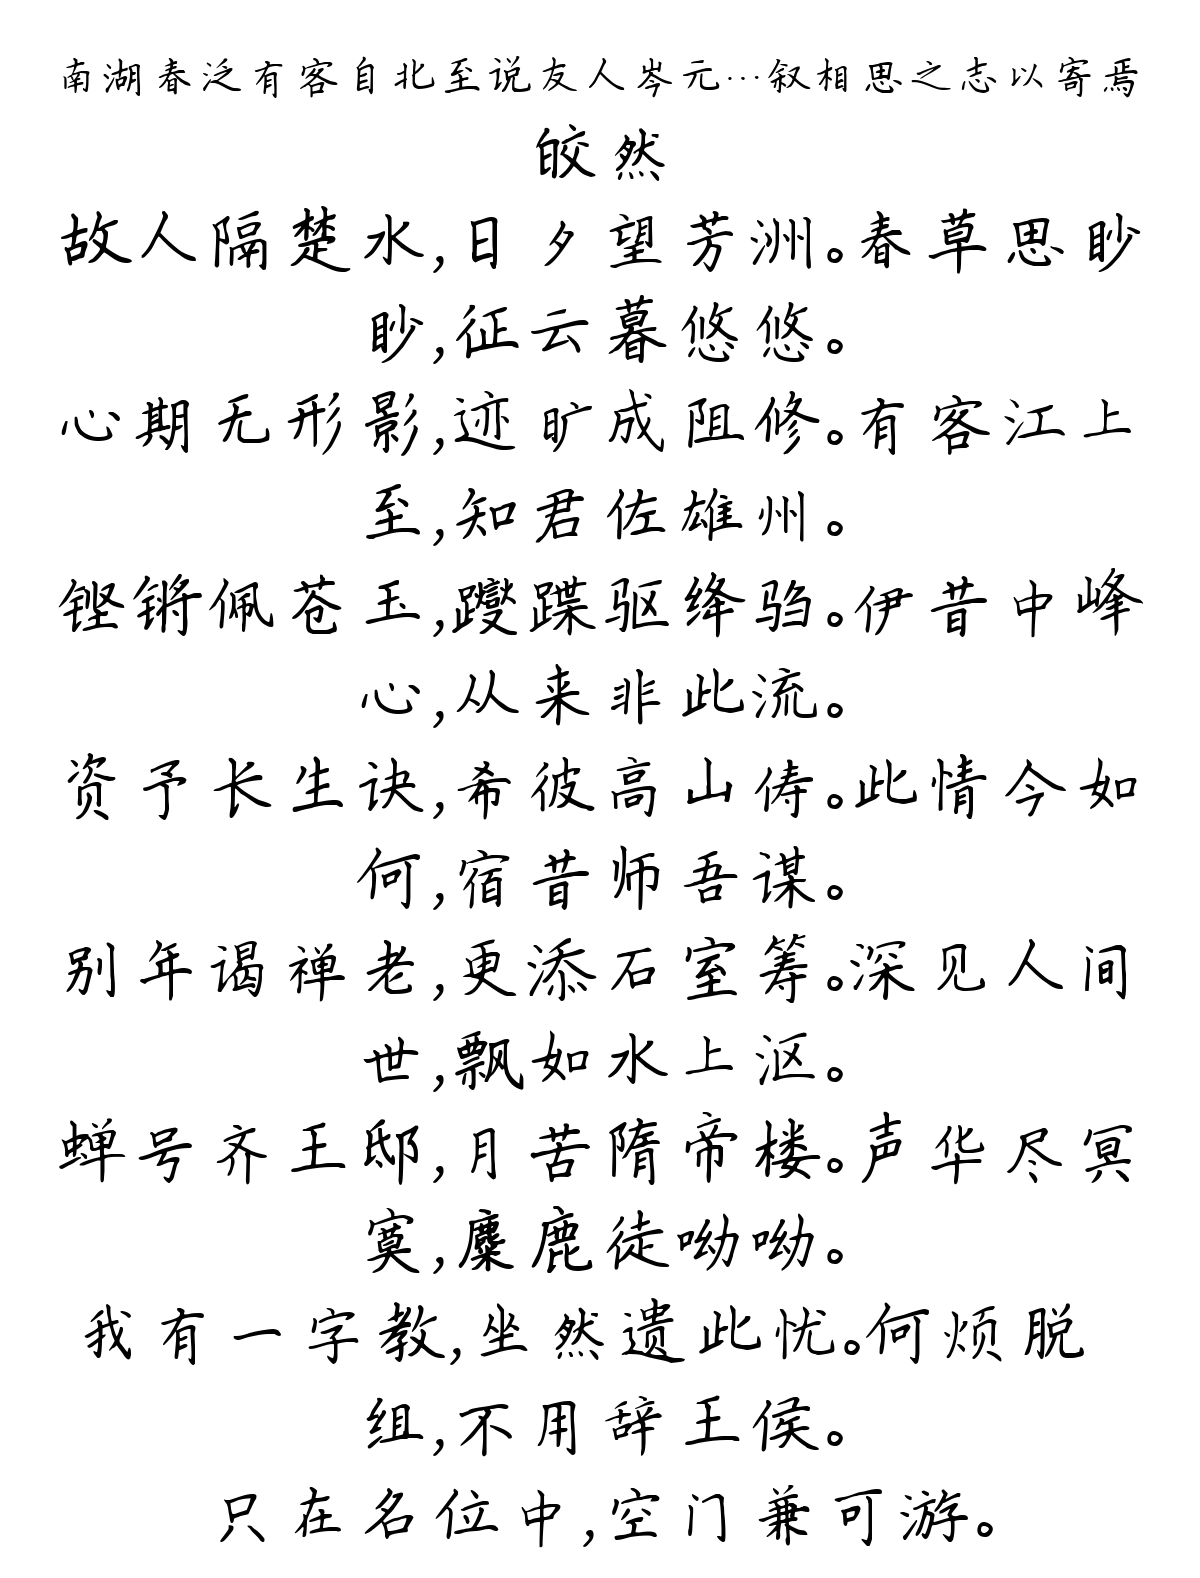 南湖春泛有客自北至说友人岑元…叙相思之志以寄焉
皎然
故人隔楚水,日夕望芳洲。春草思眇
眇,征云暮悠悠。
心期无形影,迹旷成阻修。有客江上
至,知君佐雄州。
铿锵佩苍玉,躞蹀驱绛驺。伊昔中峰
心,从来非此流。
资予长生诀,希彼高山俦。此情今如
何,宿昔师吾谋。
别年谒禅老,更添石室筹。深见人间
世,飘如水上沤。
蝉号齐王邸,月苦隋帝楼。声华尽冥
寞,麋鹿徒呦呦。
我有一字教,坐然遗此忧。何烦脱
组,不用辞王侯。
只在名位中,空门兼可游。